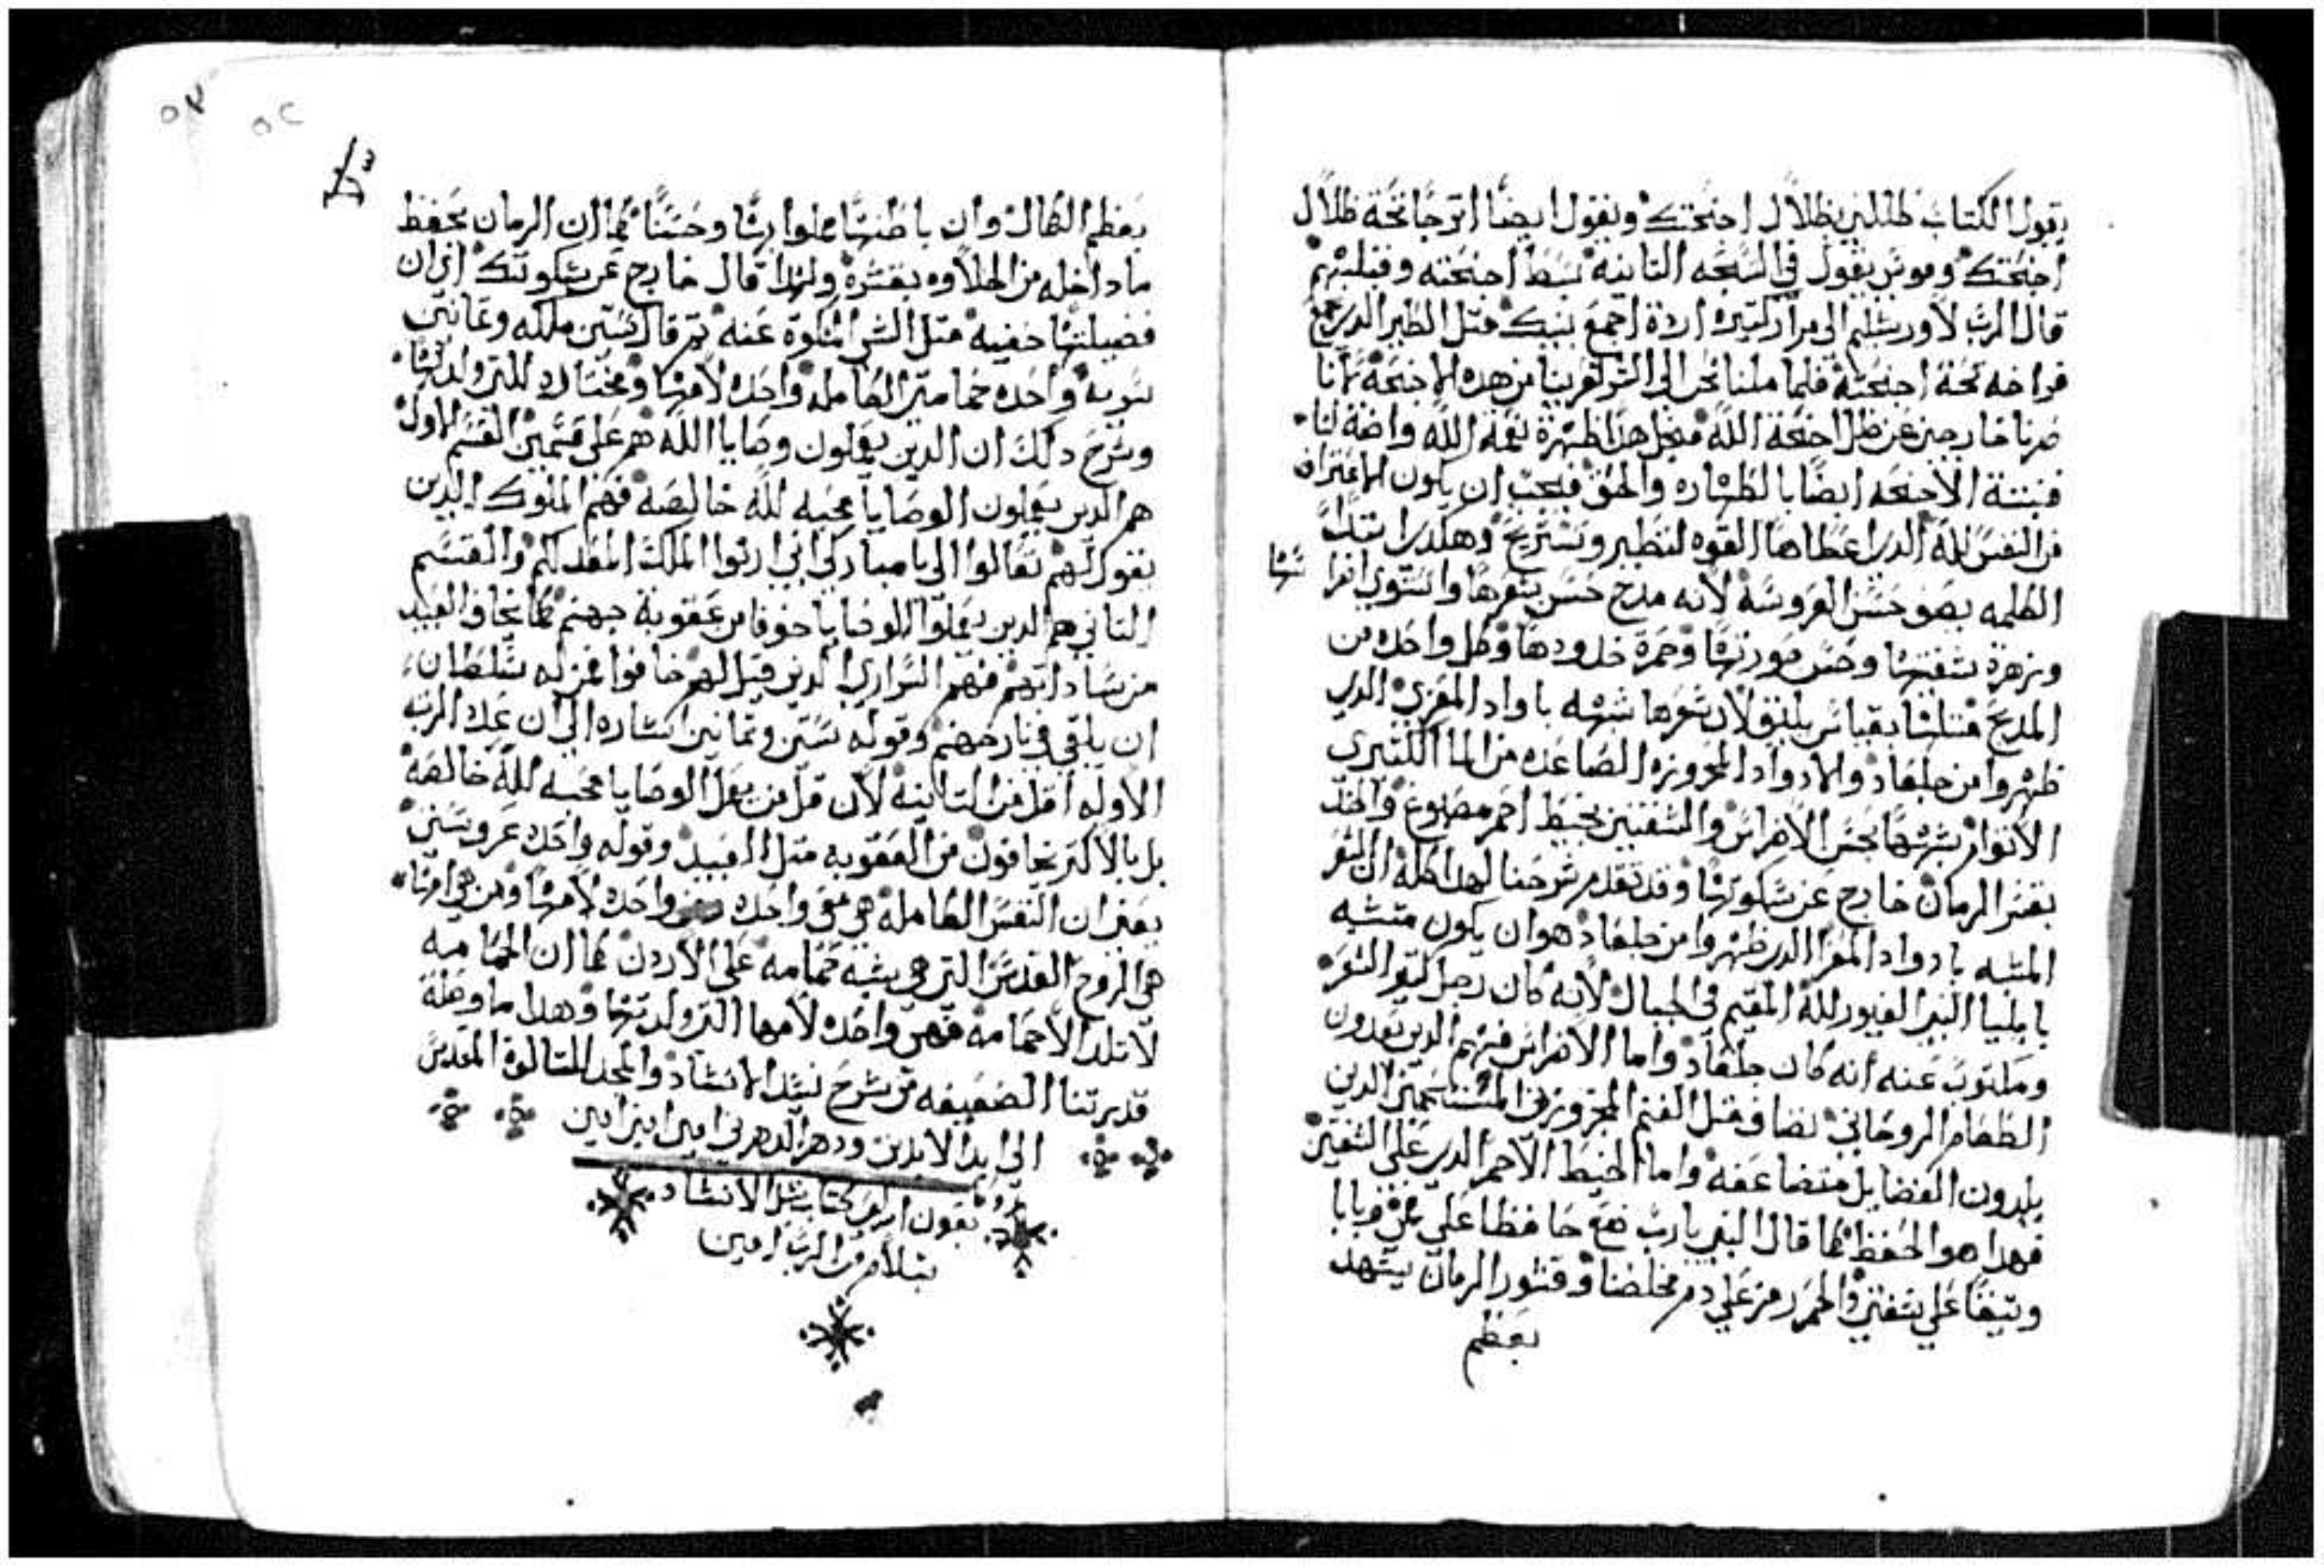 يقول الكتاب ظللني بظلال اجنحتك ونقول ايضًا اترجا تحة ظلال
اجنحتك وموسى يقول في التسبحه التانيه بسط اجنحته وقبلهم
قال الرب لاورشليم الى مرارًا كتيره اردة اجمع بنيك متل الطير الدي يجمع
فراخه تحة اجنحته فلما ملنا نحن الى الشر تعرينا من هده الاجنحة لاننا
صرنا خارجين عن ظل اجنحة الله فمن اجل هدا ظهرة نعمة الله واضة لنا
فنبتة الاجنحه ايضًا بالطهاره والحق فيجب ان يكون الاعتراف
من النفس لله الدي اعطاها القوه لتطير وتستريح وهكدا ابتدا
الكلمه يصف حسن العروسة لانه مدح حسن شعرها واستوي افرا شها
وزهرة شفتيها وحسن صورتها وحمرة خدودها وكل واحده من
المديح متلها بقياس يليق لان شعرها شبهه باواد المعزي الدي
ظهروا من جلعاد والادواد المجزوزه الصاعده من الما الكتيري
الاتوام شبهها بحسن الاضراس والشفتين بخيط احمر مصبوغ والخد
بقشر الرمان خارج عن سكوتها وقد تقدم شرحنا لهدا كله ان الشعر
المشبه بادواد المعزا الدي ظهروا من جلعاد هو ان يكون متشبه
بايليا النبي الغيور لله المقيم في الجبال لانه كان رجل كتير الشعر
ومكتوب عنه انه كان جلعاد واما الاضراس فهم الدين يعدون
الطعام الروحاني نضاف متل الغنم المجزوزين المستحمين الدين
يلدون الفضايل متضاعفه واما الخيط الاحمر الدي على الشفتين
فهدا هو الحفظ كما قال النبي يارب ضع حافظا على فمي وبابا
وتيقًا على شفتي والحمر رمز على دم مخلصنا وقشور الرمان يشهد
بعظم
بعظم الكمال وان باطنها مملوا بهًا وحسنًا كما ان الرمان يحفظ
ما داخله من الحلاوه بقشره ولهدا قال خارج عن سكوتك اي ان
فضيلتها خفيه متل الشي المسكوة عنه تم قال ستين ملكه وتمانين
سريه واحده حمامتي الكامله واحده لامها ومختاره للتي ولدتها
وشرح دلك ان الدين يعملون وصايا الله هم على قسمين القسم الاول
هم الدين يعملون الوصايا محبه لله خالصه فهم الملوك الدين
يقول لهم تعالوا الي يا مباركي ابي ارتوا الملك المعد لكم والقسم
التاني هم الدين يعملوا الوصايا خوفا من عقوبة جهنم كما يخاف العبيد
من ساداتهم فهم السراري الدين قيل لهم خافوا ممن له سلطان
ان يلقي في نار جهنم وقوله ستين وتمانين اشاره الى ان عدد الرتبه
الاوله اقل من التانيه لان قل من يعمل الوصايا محبه لله خالصه
بل بالاكتر يخافون من العقوبه متل العبيد وقوله واحده عروستي
يعني ان النفس الكامله هي واحده لامها ومن هي امها
هي الروح القدس التي هي شبه حمامه على الاردن كما ان الحمامه
لا تلد الا حمامه فهي واحده لامها التي ولدتها وهدا ما وصلة
قدرتنا الضعيفه من شرح نشيد الانشاد والمجد للتالوت المقدس
الى ابد الابدين ودهر الدهرين امين امين امين
بعون الرب كتاب نشيد الانشاد
بسلام من الرب امين